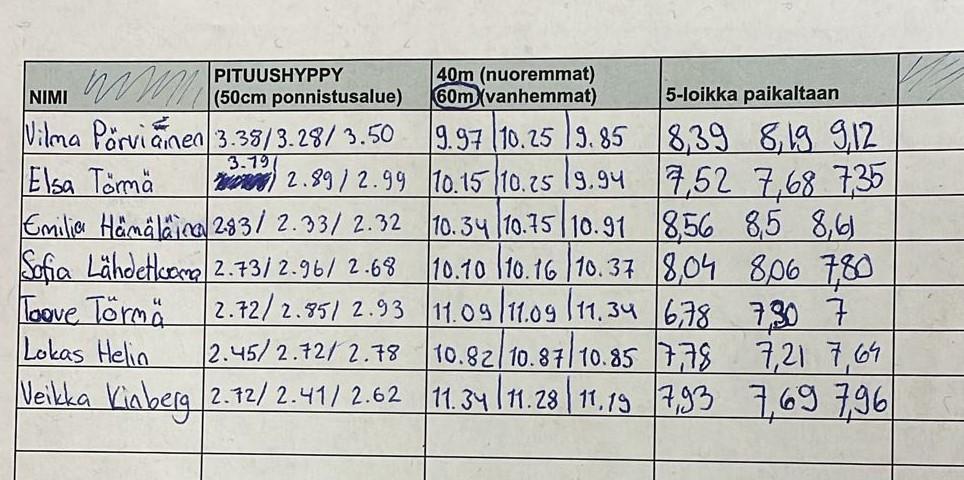 NIMI PITUUSHYPPY (50cm ponnistusalue) 40m (nuoremmat) 60m (vanhemmat) 5-loikka paikaltaan
Vilma Pörviäinen 3.38/3.28/3.50 9.97|10.25|9.85 8,39 8,19 9,12
Elsa Törmä 3.19/ 2.89/2.99 10.15|10.25|9.94 7,52 7,68 7,35
Emilia Hämäläinen 2.83/2.33/2.32 10.34|10.75|10.91 8,56 8,5 8,61
Sofia 2.73/2.96/2.68 10.10|10.16|10.37 8,04 8,06 7,80
Toove Törmä 2.72/2.85/2.93 11.09|11.09|11.34 6,78 7,30 7
Lukas Helin 2.45/2.72/2.78 10.82|10.87|10.85 7,78 7,21 7,64
Veikka Kinberg 2.72/2.41/2.62 11.34|11.28|11.19 7,93 7,69 7,96